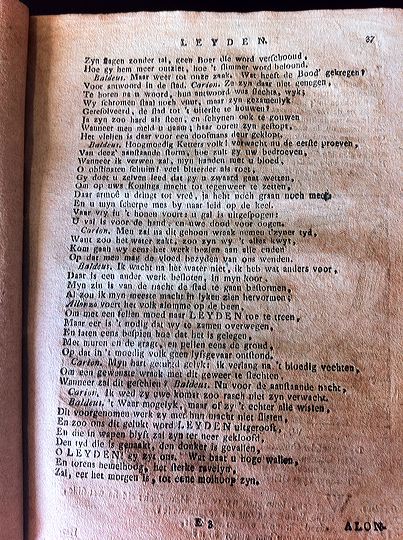 LEYDEN. 37
Zyn slagen zonder tal, geen Boer die word verschoond,
Hoe gy hem meer ontziet, hoe 't slimmer word beloond.
Baldeus. Maar weer tot onze zaak. Wat heeft de Bood' gekregen?
Voor antwoord in de stad. Carion. Ze zyn daar niet genegen,
Te horen na u woord, hun antwoord was slechts, wyk;
Wy schromen staal noch vuur, maar zyn gezamenlyk
Geresolveerd, de stad tot 't uiterste te houwen?
Ja zyn zoo hard als steen, en schynen ook te gouwen
Wanneer men meld u quam; haar ooren zyn gestopt,
Het vleijen is daar voor een doofmans deur geklopt.
Baldeus. Hoogmoedig Ketters volk! verwacht nu de eerste proeven,
Van deez' aanstaande storm, hoe zult gy u bedroeven,
Wanneer ik verwen zal, myn handen met u bloed,
O obstinaten schuim! veel bitterder als roet,
Gy doet u zelven leed dat gy u zwaard gaat wetten,
Om op uws Konings macht tot tegenweer te zetten,
Daar armoe u dringt tot vreê, ja hebt noch graan noch meel
En u myn scherpe mes by naar leid op de keel.
Vaar vry in 't honen voort: u gal is uitgespogen:
U val is voor de hand, en uwe dood voor oogen.
Carion. Men zal na dit gehoon wraak nemen t'zyner tyd,
Want zoo het water zakt, zoo zyn wy 't alles kwyt,
Kom gaan wy eens het werk bezien aan alle enden
Op dat men mag de vloed bezyden van ons wenden.
Baldeus. Ik wacht na het water niet, ik heb wat anders voor,
Daar is een ander werk besloten, in myn koor.
Myn zin is van de nacht de stad te gaan bestormen,
Al zou ik myn meeste macht in lyken zien hervormen;
Allonzo voert het volk alomme op de been,
Om met een fellen moed naar LEYDEN toe te treen,
Maar eer is 't nodig dat wy te zamen overwegen,
En laten eens bespien hoe dat het is gelegen,
Met muren en de gragt, en peilen eens de grond,
Op dat in 't moedig volk geen lyfsgevaar ontstond.
Carion. Myn hart geraakt gelykt: ik verlang na 't bloedig vechten,
Om een gewenste wraak met dit geweer te slechten
Wanneer zal dit geschien? Baldeus. Nu voor de aanstaande nacht,
Carion. Ik wed zy uwe komst zoo rasch niet zyn verwacht.
Baldeus. 't Waar mogelyk, maar of zy 't echter alle wisten,
Dit voorgenomen werk zy met hun macht niet slisten,
En zoo ons dit gelukt word LEYDEN uitgerooft,
En die in wapen blyft zal zyn ter neer gekloofd,
Den tyd die is gemaakt, den donker is gevallen,
O LEYDEN! gy zyt ons. Wat baat u hoge wallen,
En torens hemelhoog, het sterke ravelyn,
Zal, eer het morgen is, tot eene molhoop zyn.
E 3 ALON-